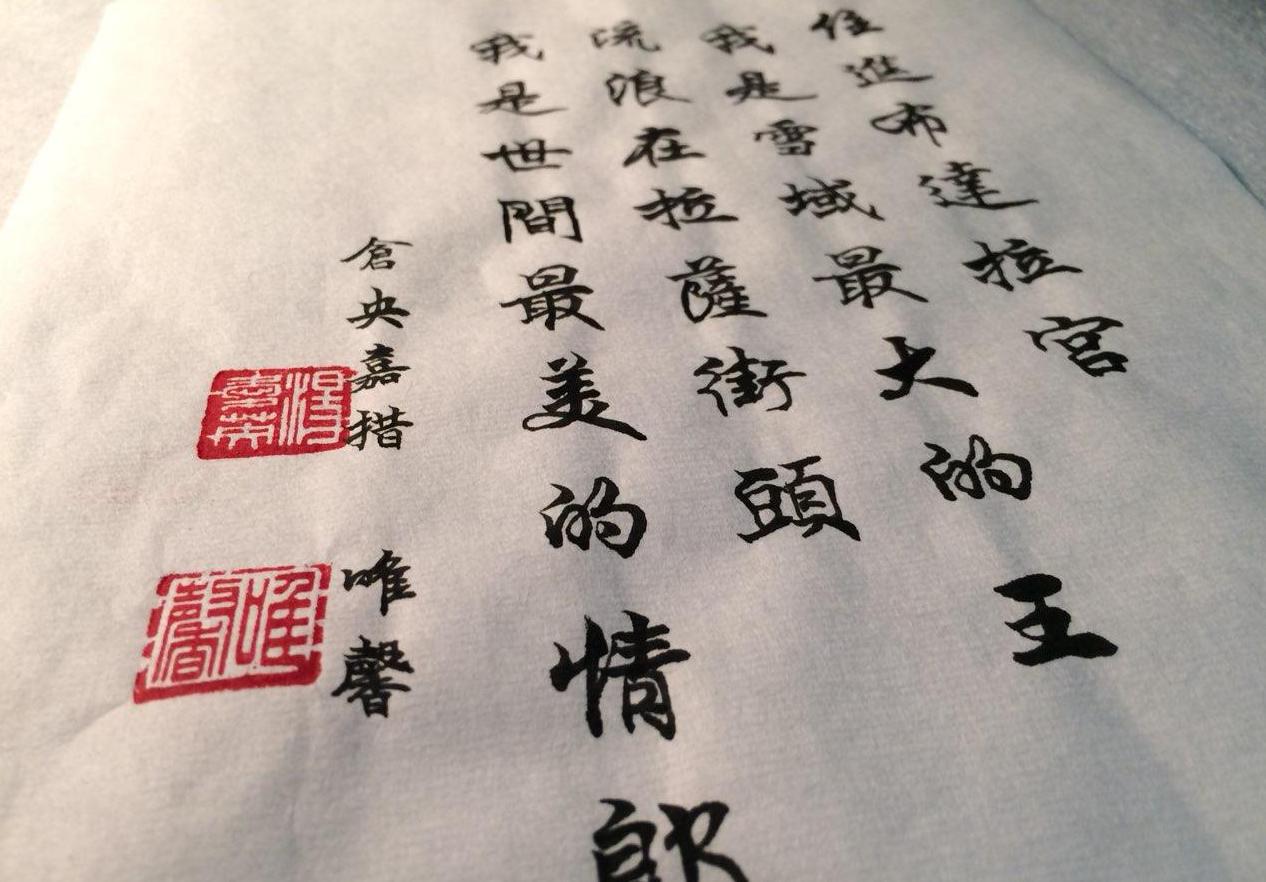 住進布達拉宮
我是雪域最大的王
流浪在拉薩街頭
我是世間最美的情郎
倉央嘉措 唯馨
唯馨